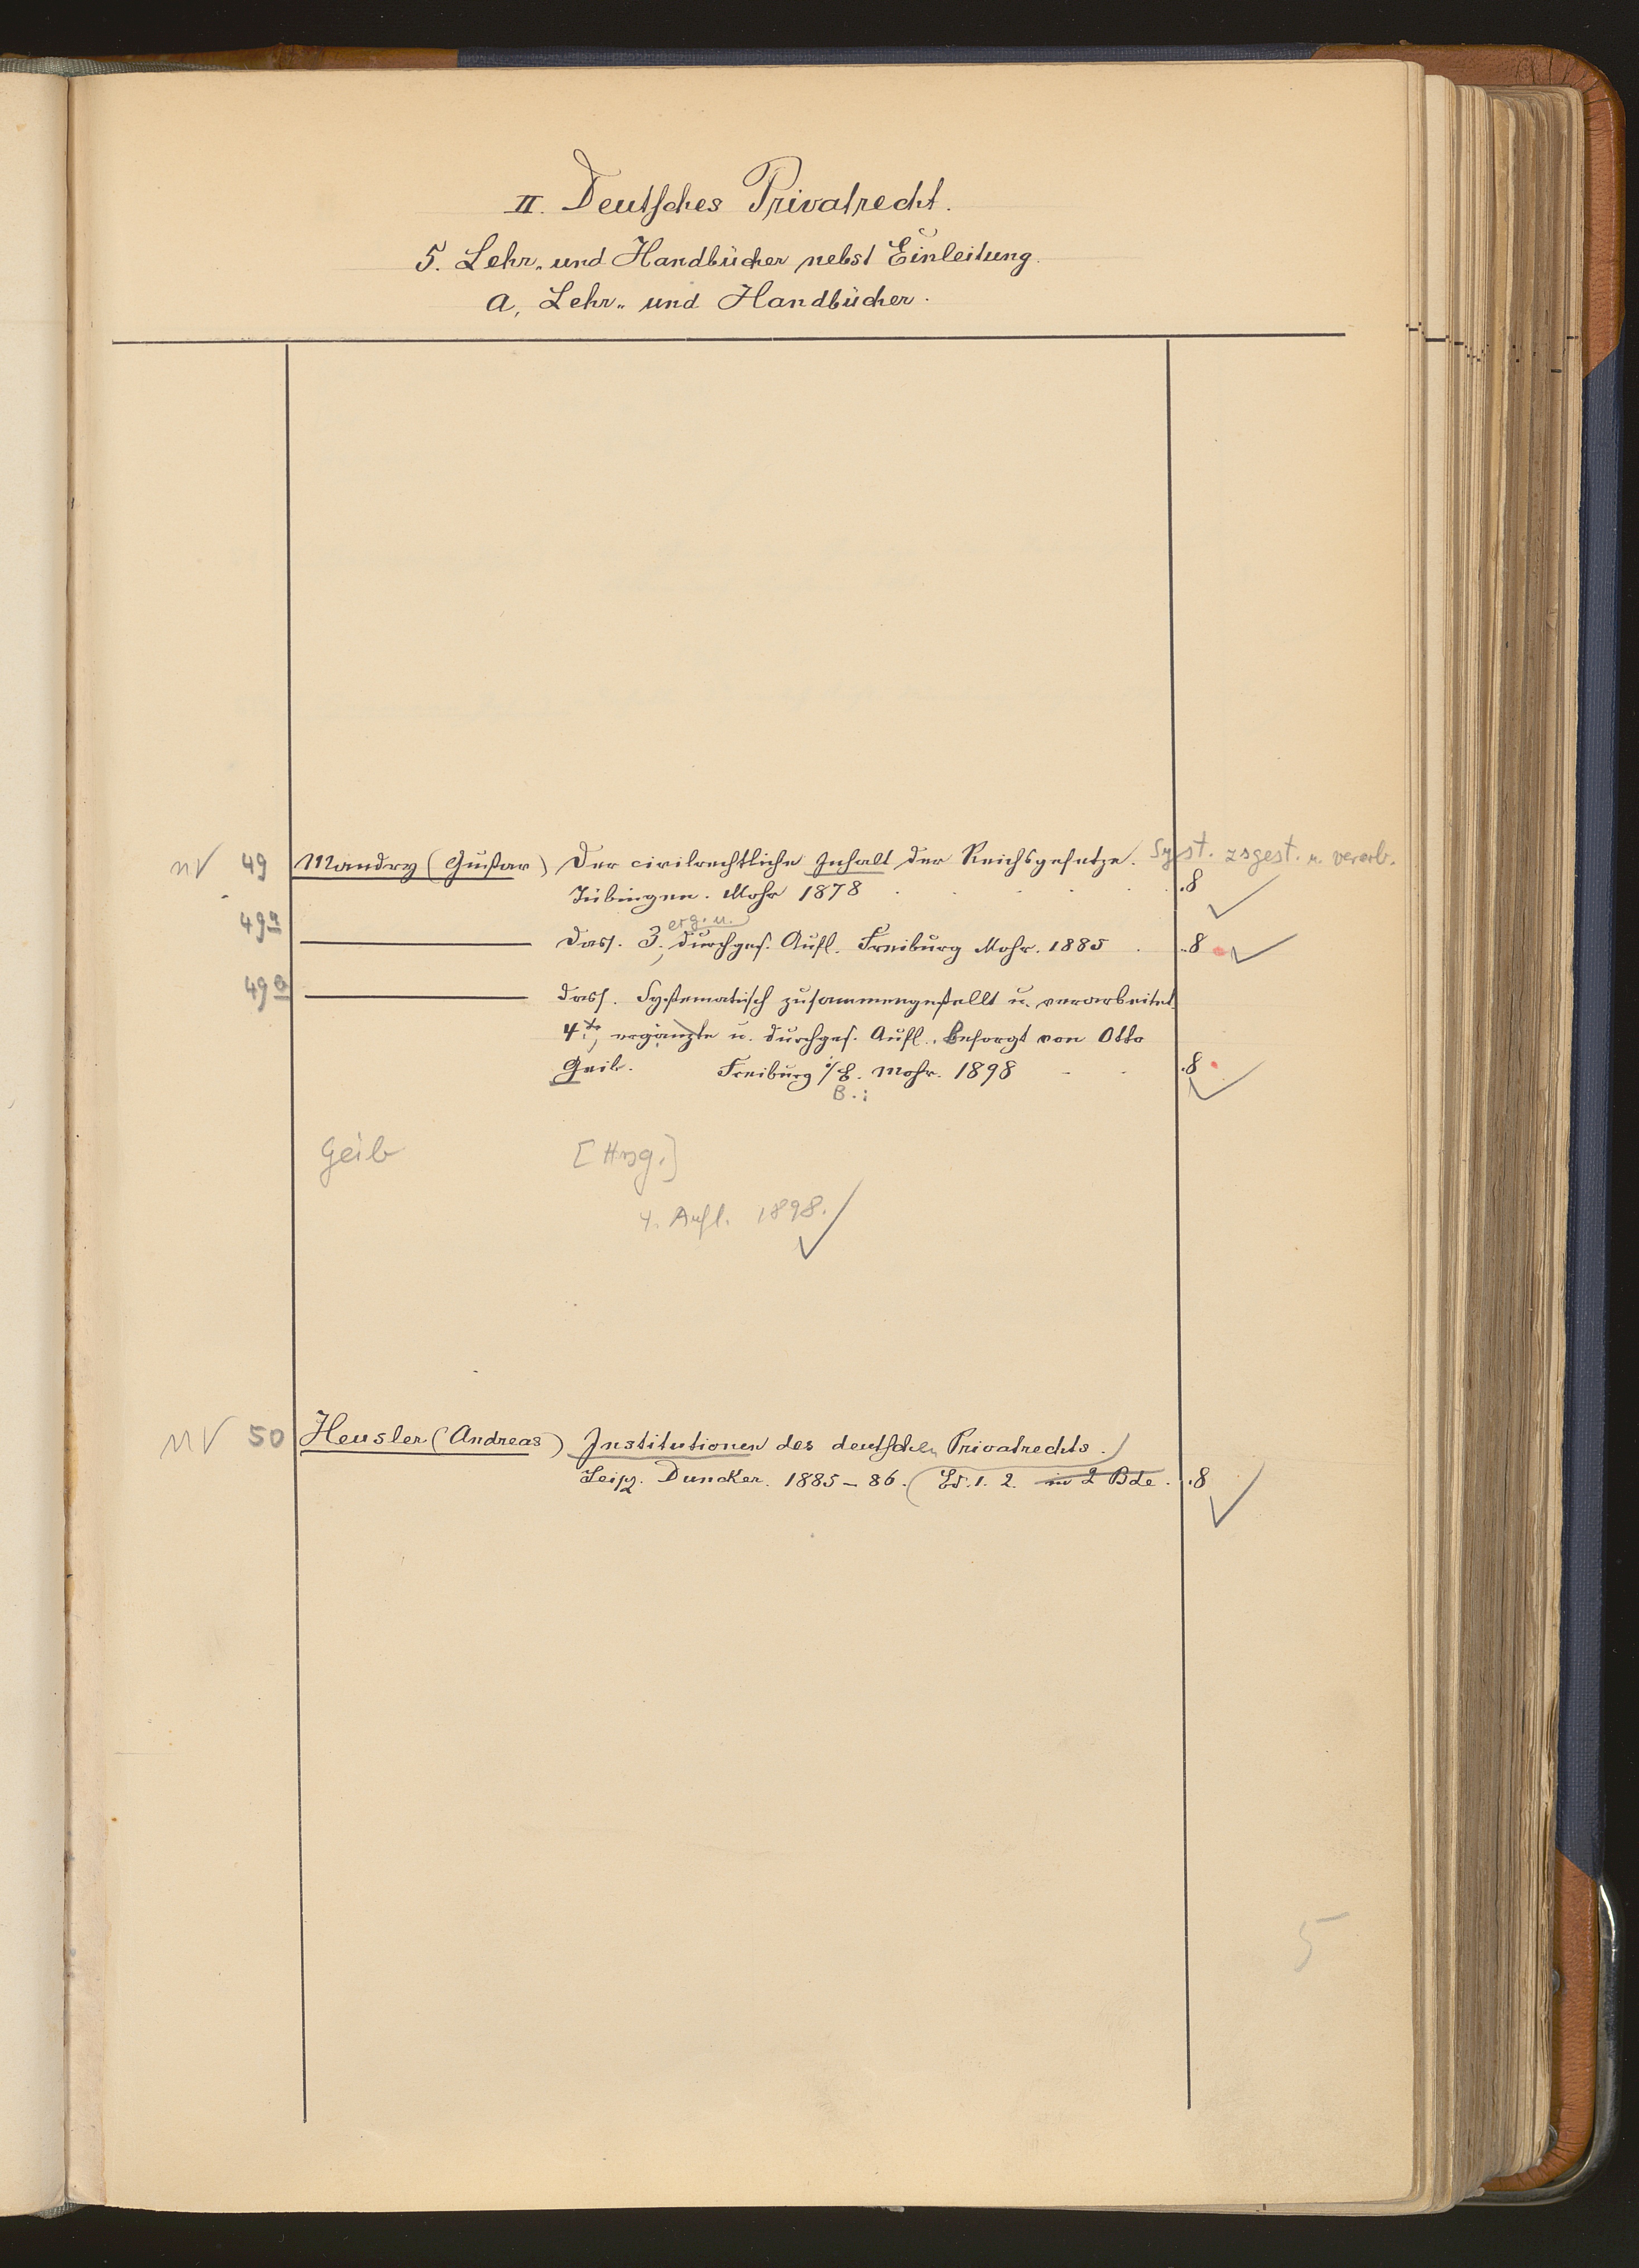 II. Deutsches Privatrecht.
5. Lehr- und Handbücher nebst Einleitung.
a, Lehr- und Handbücher.
nV 49 Mandry (Gustav) Der civilrechtliche Inhalt der Reichsgesetze. Syst. zsgest. u. verarb.
Tübingen. Mohr 1878 . 8
erg. u.
49a Dass. 3., durchges. Aufl. Freiburg Mohr. 1885 . 8
49b Dass. Systematisch zusammengestellt u. verarbeitet
4te, ergänzte u. durchges. Aufl. besorgt von Otto
Geib. Freiburg i/B. Mohr. 1898 . 8
B.:
Geib [Hrsg.]
4. Aufl. 1898.
nV 50 Heusler (Andreas) Institutionen des deutschen Privatrechts.
Leipz. Duncker. 1885-86. (Bd. 1. 2. in 2 Bde. . 8
5